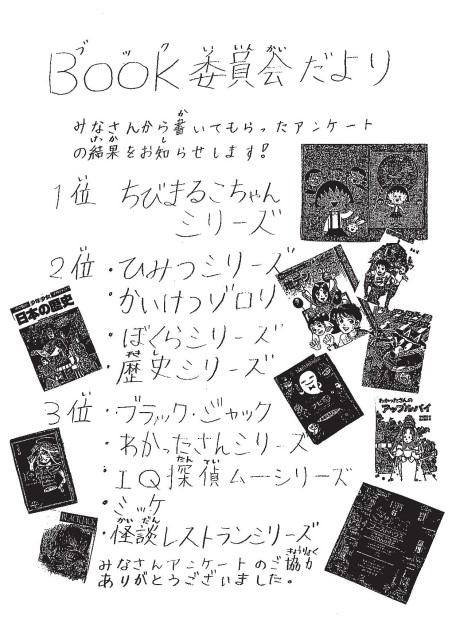 Book委員会だより
みなさんから書いてもらったアンケート
の結果をお知らせします!
1位 ちびまるこちゃん
シリーズ
2位・ひみつシリーズ
・かいけつゾロリ
・ぼくらシリーズ
・歴史シリーズ
3位・ブラック・ジャック
・わかったさんシリーズ
・IQ探偵ムーシリーズ
・ミッケ
・怪談レストランシリーズ
みなさんアンケートのご協力
ありがとうございました。
日本の歴史
わかったさんの
アップルパイ
BLACK JACK